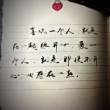 喜欢一个人,就是
在一起很开心;爱一
个人,就是即使不开
心,也想在一起。